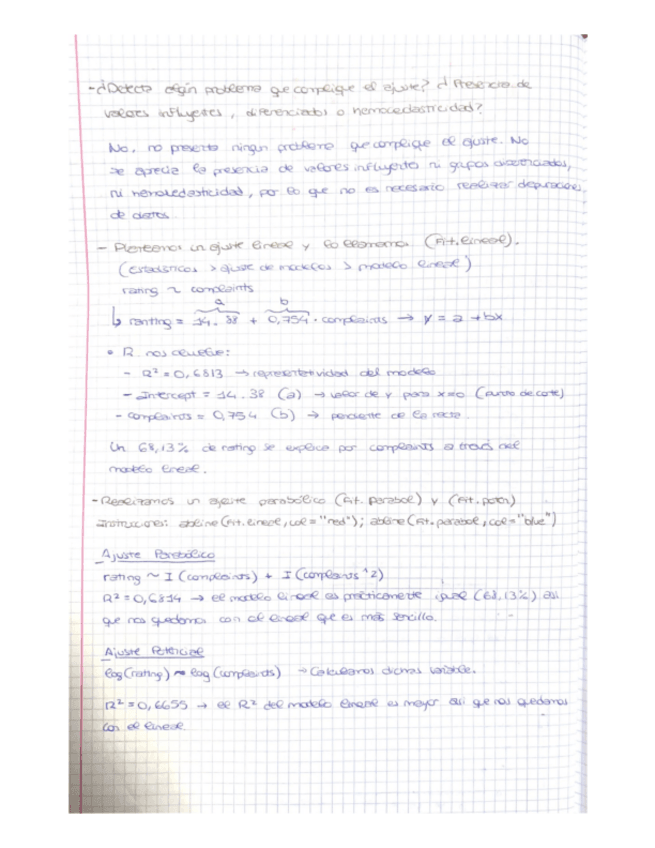 - ¿Detecta algún problema que complique el ajuste? ¿Presencia de
valores influyentes, diferenciados o hemocedasticidad?
No, no presenta ningún problema que complique el ajuste. No
se aprecia la presencia de valores influyentes ni grupos diferenciados,
ni hemocedasticidad, por lo que no es necesario realizar depuraciones
de datos.
- Planteamos un ajuste lineal y lo llamamos (Fit.lineal).
(Estadísticos > ajuste de modelos > modelo lineal)
rating ~ complaints
a b
↳ ranting = 14.38 + 0,754 · complaints → y = a + bx
• R nos devuelve:
- R² = 0,6813 → representatividad del modelo
- Intercept = 14.38 (a) → valor de y para x=0 (punto de corte)
- complaints = 0,754 (b) → pendiente de la recta
Un 68,13% de rating se explica por complaints a través del
modelo lineal.
- Realizamos un ajuste parabólico (Fit.parabol) y (Fit.poten)
Instrucciones: abline(Fit.lineal, col="red"); abline(Fit.parabol, col="blue")
Ajuste Parabólico
rating ~ I(complaints) + I(complaints^2)
R² = 0,6814 → el modelo lineal es prácticamente igual (68,13%) así
que nos quedamos con el lineal que es más sencillo.
Ajuste Potencial
log(rating) ~ log(complaints) → Calculamos dichas variable.
R² = 0,6655 → el R² del modelo lineal es mayor así que nos quedamos
con el lineal